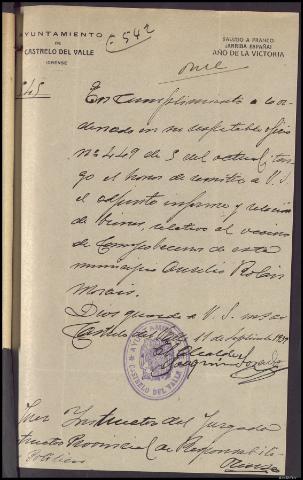 AYUNTAMIENTO
DE
CASTRELO DEL VALLE
(ORENSE)
F-542
SALUDO A FRANCO:
¡ARRIBA ESPAÑA!
AÑO DE LA VICTORIA
545
En cumplimiento a lo or-
denado en su respetable oficio
nº 449 de 3 del actual, ten-
go el honor de remitir a V. S.
el adjunto informe y relación
de bienes, relativo al vecino
de Campobecerros de este
municipio Aurelio Rolán
Morais.
Dios guarde a V. S. muchos
Castrelo del Valle 11 de Septiembre 1939
El Alcalde,
AYUNTAMIENTO
CASTRELO DEL VALLE
Juez Instructor del Juzgado
Instructor Provincial de Responsabili-
Políticas
Orense